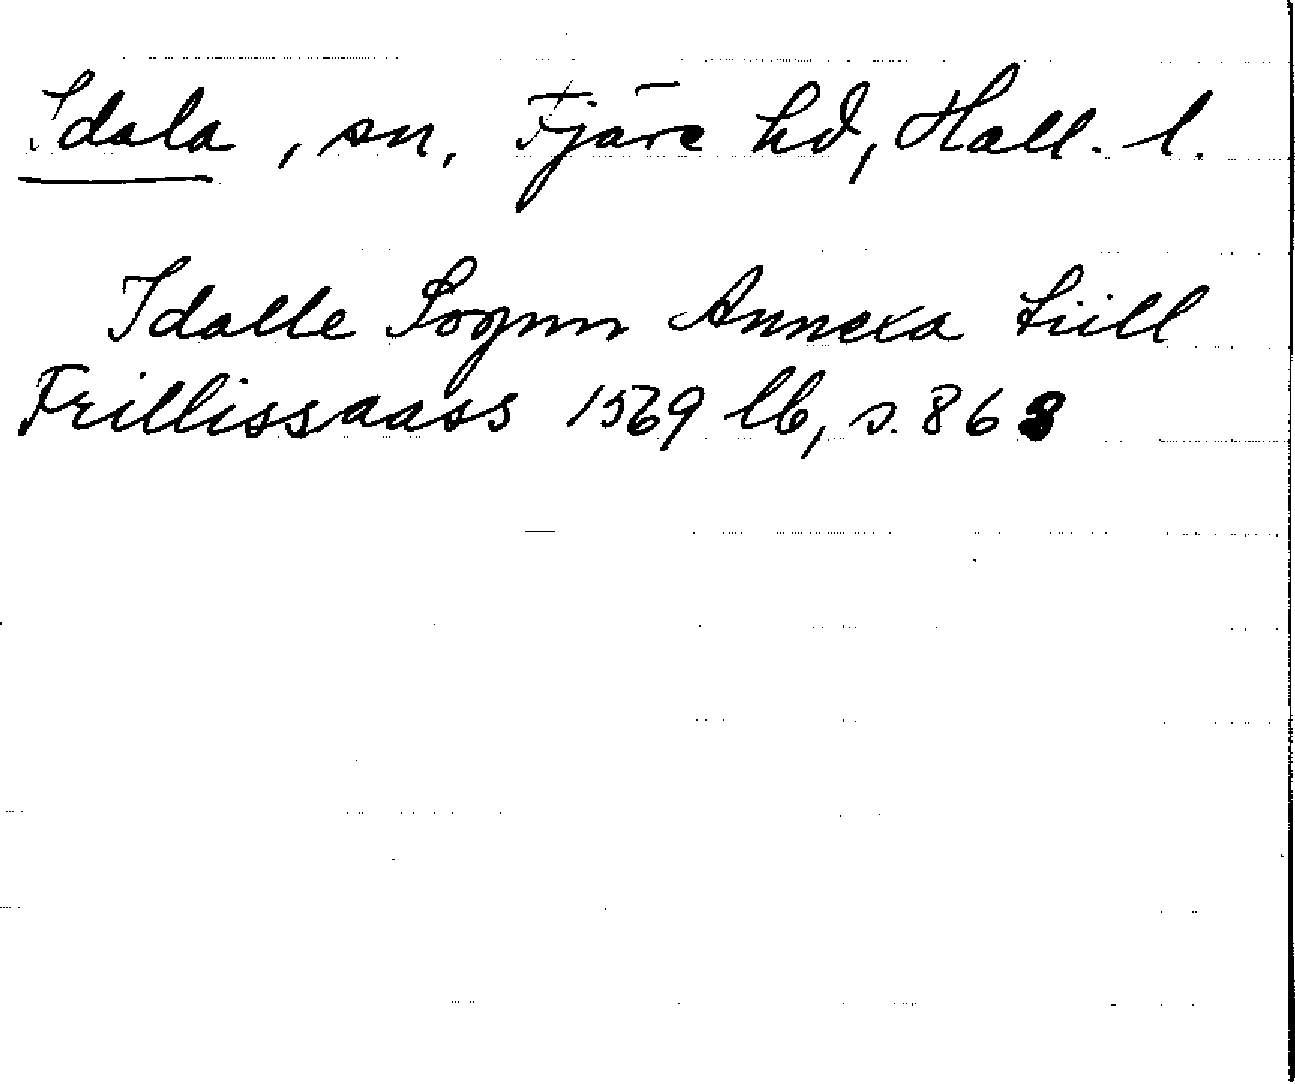 Idala, sn, Fjäre hd, Hall. l.
Idalle Sognn Annexa tiill
Frillissaass 1569 lb, s. 863